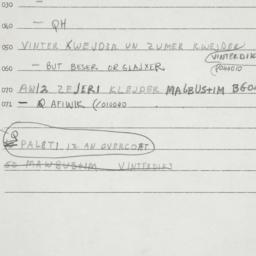 030 —
040 — QH
050 VINTER KWEJDER UN ZUMER KWEJDER
VINTERDIK
060 — BUT BESER OR GLAJXER (010010
070 AWIZ ZEJERI KLEJDER MALBUSHIM BGD
071 — Q AFIWIK (010040
Q
PALETI IZ AN OVERCOAT
60 MALBUSHIM VINTERDIKI